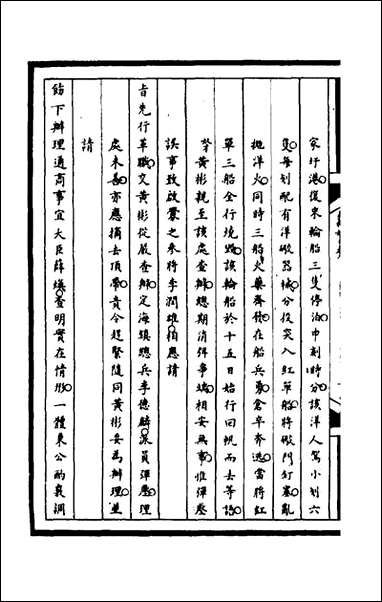 家圩港復來輪船三隻停泊申刻時分該洋人駕小划六
隻每划配有洋礮器械分投突入紅單船將礮門釘塞亂
拋洋火同時三船火藥齊發在船兵勇倉卒奔逃當將紅
單三船全行燒燬該輪船於十五日始行回帆而去等語
黃彬親至該處查辦總期消弭爭端相安無事惟彈壓
誤事致啟釁之參將李潤雄相應請
旨先行革職交黃彬從嚴查辦定海鎮總兵李德麟派員彈壓理
處未善亦應摘去頂帶責令趕緊隨同黃彬妥為辦理並
請
飭下辦理通商事宜大臣薛煥查明實在情形一體秉公酌裁調